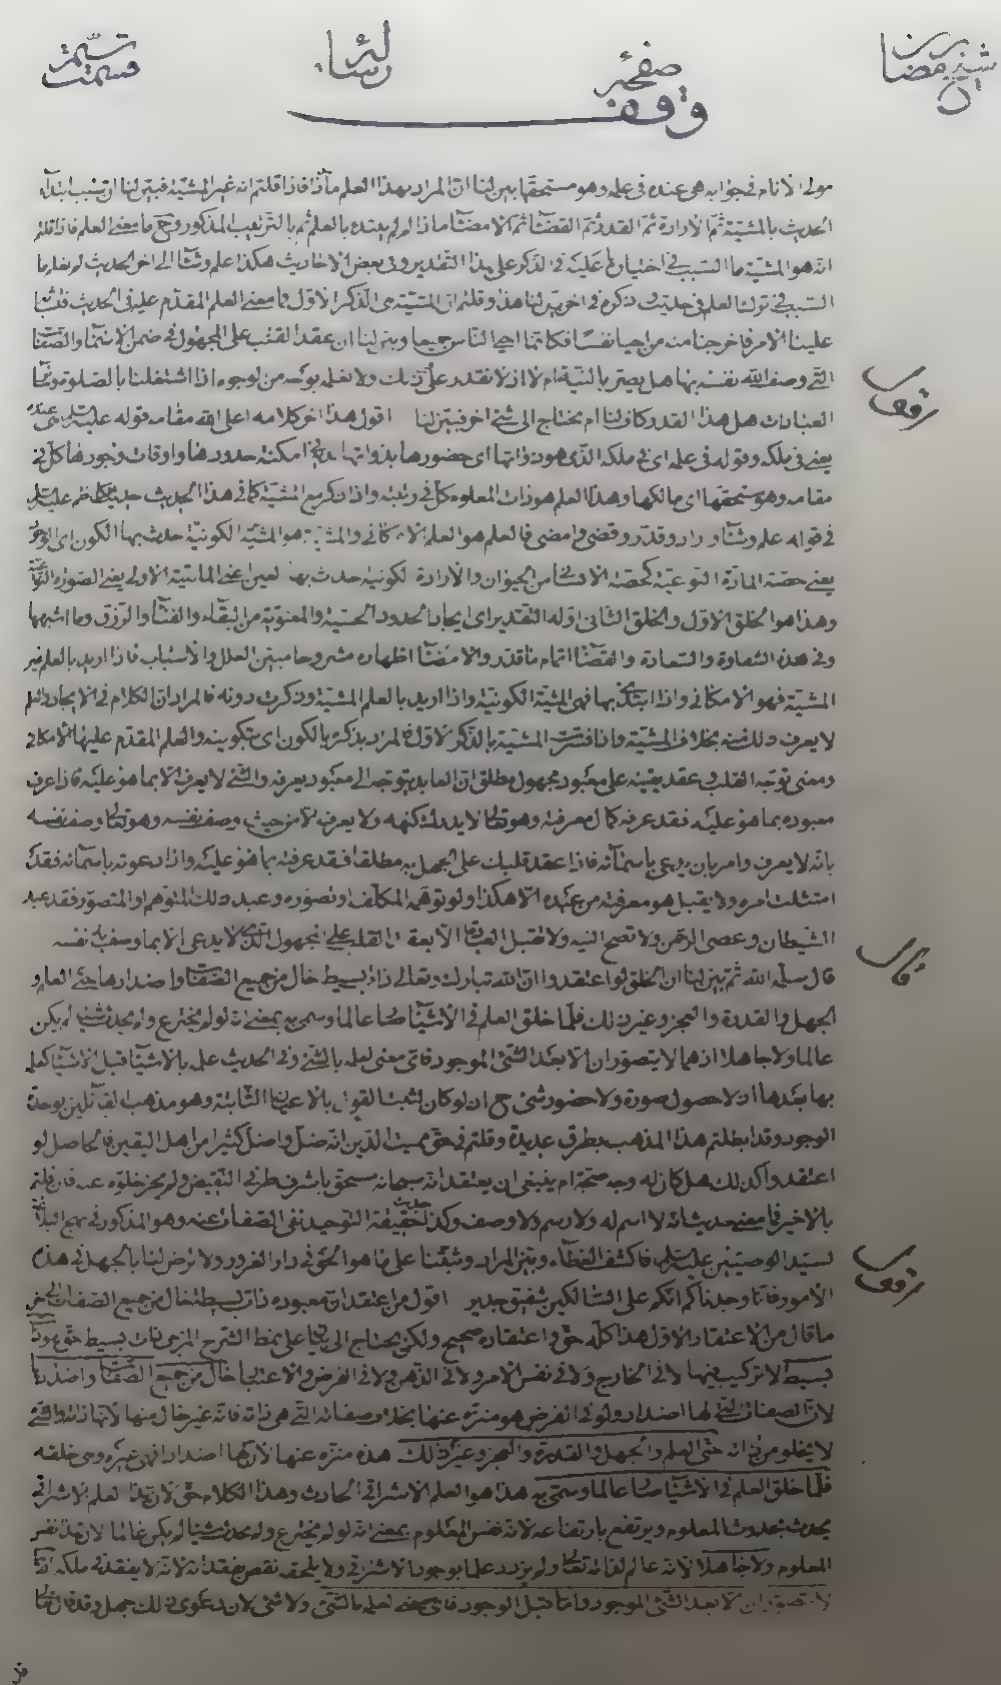 صفحة
وقف
مولى الانام في جوابه هي عنده في علمه وهو مستحقها بين لنا ان المراد بهذا العلم ماذا فاذا قلتم انه غير المشيّة فبيّن لنا ان سبب ابتدآء
الحديث بالمشيّة ثم الارادة ثم القدر ثم القضآ ثم الامضآ ماذا ولم لم يبتدء بالعلم ثم بالترتيب المذكور وح ما معنى العلم فاذا قلتم
انه هو المشيّة ما السبب في اختيار في الذكر على هذا التقدير وفي بعض الاحاديث هكذا علم وشآ الى اخر الحديث لم نعلم ما
السبب في ترك العلم في حديث وذكره في اخر بين لنا هذا وقلتم ان المشيّة هي الذكر الاول فما معنى العلم المقدّم عليه في الحديث
علينا الامر فاخرجنا منه من احيا نفسا فكانما احيى الناس جميعا وبيّن لنا ان عقد القلب على المجهول في ضمن الاسمآ والصفات
التي وصف الله نفسه بها هل يصير بالنيّة ام لا اذ لا نقدر على ذلك ولا نعلمه بوجه من الوجوه اذا اشتغلنا بالصلوة
العبادات هل هذا القدر كاف لنا ام يحتاج الى شئ اخر فبيّن لنا اقول هذا اخر كلامه اعلى الله مقامه قوله عليه السلم هي عنده
يعني في ملكه وقوله في علمه اي في ملكه الذي هو ذواتها اي حضورها بذواتها في امكنة حدودها واوقات وجودها كل في
مقامه وهو مستحقها اي مالكها وهذا العلم هو ذات المعلوم كل في رتبته واذا ذكر مع المشيّة كما في هذا الحديث
في قوله علم وشآء واراد وقدّر وقضى وامضى فالعلم هو العلم الامكاني والمشيّة هو المشيّة الكونيّة حدث بها الكون اي
يعني حصّة المادّة النوعيّة كحصّة الانسان من الحيوان والارادة الكونية حدث بها العين اعني الماهيّة الاولى يعني الصورة النوعيّة
وهذا هو الخلق الاول والخلق الثاني اوّله التقدير اي ايجاد الحدود الحسيّة والمعنوية من البقآء والفنآء والرزق وما اشبهها
وفي هذه الشقاوة والسعادة والقضآء اتمام ما قدّر والامضآء اظهاره مشروحا مبيّن العلل والاسباب فاذا اريد بالعلم غير
المشيّة فهو الامكاني واذا ابتدئ بها فهي المشيّة الكونيّة واذا اريد بالعلم المشيّة وذكرت دونه فالمراد ان الكلام في الايجاد والعلم
لا يعرف ذلك منه بخلاف المشيّة وانا فسّرت المشيّة بالذكر الاول المراد بذكره بالكون اي بتكوينه والعلم المقدّم عليها الامكاني
ومعنى توجّه القلب وعقد يقينه على معبود مجهول مطلق ان العابد يتوجّه الى معبود يعرفه والشئ لا يعرف الا بما هو عليه فاذا عرف
معبوده بما هو عليه فقد عرفه كمال معرفته وهو تعالى لا يدرك كنهه ولا يعرف الا من حيث وصف نفسه وهو تعالى وصف نفسه
بانه لا يعرف وامر بان يدعى باسمآئه فاذا عقد قلبك على الجهل به مطلقا فقد عرفته بما هو عليه واذا دعوته باسمآئه فقد
امتثلت امره ولا يقبل هو معرفته من عبده الا هكذا ولو توهم المكلّف او تصوره وعبد ذلك المتوهم او المتصوّر فقد عبد
الشيطان وعصى الرحمن ولا تصح النيّة ولا تقبل العبادة الا بعقد القلب على المجهول الذي لا يدعى الا بما وصف به نفسه
قال سلّمه الله ثم بيّن لنا ان الخلق لو اعتقدوا ان الله تبارك وتعالى ذات بسيط خال من جميع الصفات واضدادها حتى العلم و
الجهل والقدرة والعجز وغير ذلك فلمّا خلق العلم في الاشيآء صار عالما وسمّي به بمعنى انه لو لم يخترع ولم يحدث شيئا لم يكن
عالما ولا جاهلا اذ هما لا يتصوران الا بعد الشئ الموجود فاي معنى لعلمه بالشئ وفي الحديث علمه بالاشيآء قبل الاشيآء كعلمه
بها بعدها اذ لا حصول صورة ولا حضور شئ ح اذ لو كان لثبت القول بالاعيان الثابتة وهو مذهب القآئلين بوحدة
الوجود وقد ابطلتم هذا المذهب بطرق عديدة وقلتم في حق مميت الدين انه ضلّ واضلّ كثيرا من اهل اليقين فالحاصل لو
اعتقدوا كذلك هل كان له وجه صحّة ام ينبغي ان يعتقد انه سبحانه مستحق باشرف طرفي النقيض ولم يجز خلوّه عنه فان قلتم
بالاخير فما معنى حديث انه لا اسم له ولا رسم ولا وصف وكذا حديث حقيقة التوحيد نفي الصفات عنه وهو المذكور في نهج البلاغة
لسيّد الوصيّين عليه السلم فاكشف الغطآء وبيّن المراد وثبّتنا على ما هو الحق في دار الغرور ولا ترض لنا بالجهل في هذه
الامور فانا وجدناكم انكم على السالكين شفيق جدير اقول من اعتقد ان معبوده ذات بسيط خال من جميع الصفات الى اخر
ما قال من الاعتقاد الاول هذا كله حق واعتقاده صحيح ولكن يحتاج الى بيان على نمط الشرح المزجي ذات بسيط حق
بسيط لا تركيب فيها لا في الخارج ولا في نفس الامر ولا في الذهن ولا في الفرض والاعتبار خال من جميع الصفات واضدادها
لان الصفات التي لها اضداد ولو في الفرض هو منزّه عنها بخلاف صفاته التي هي ذاته فانه غير خال منها لانها ذاته والشئ
لا يخلو من ذاته حتى العلم والجهل والقدرة والعجز وغير ذلك هذه منزّه عنها لان لها اضداد فهي غيره وهي خلقه
فلمّا خلق العلم في الاشيآء صار عالما وسمّي به هذا هو العلم الاشراقي الحادث وهذا الكلام حق لان هذا العلم الاشراقي
يحدث بحدوث المعلوم ويرتفع بارتفاعه لانه نفس المعلوم بمعنى انه لو لم يخترع ولم يحدث شيئا لم يكن عالما لان هذا نفس
المعلوم ولا جاهلا لانه عالم لذاته تعالى ولم يزدد علما بوجود الاشراقي ولا يلحقه نقص بفقدانه لانه لا يفقد في ملكه
لا يتصوران الا بعد الشئ الموجود واما قبل الوجود فاي معنى لعلمه بالشئ ولا شئ لان دعوى ذلك جهل وقد قال تعالى